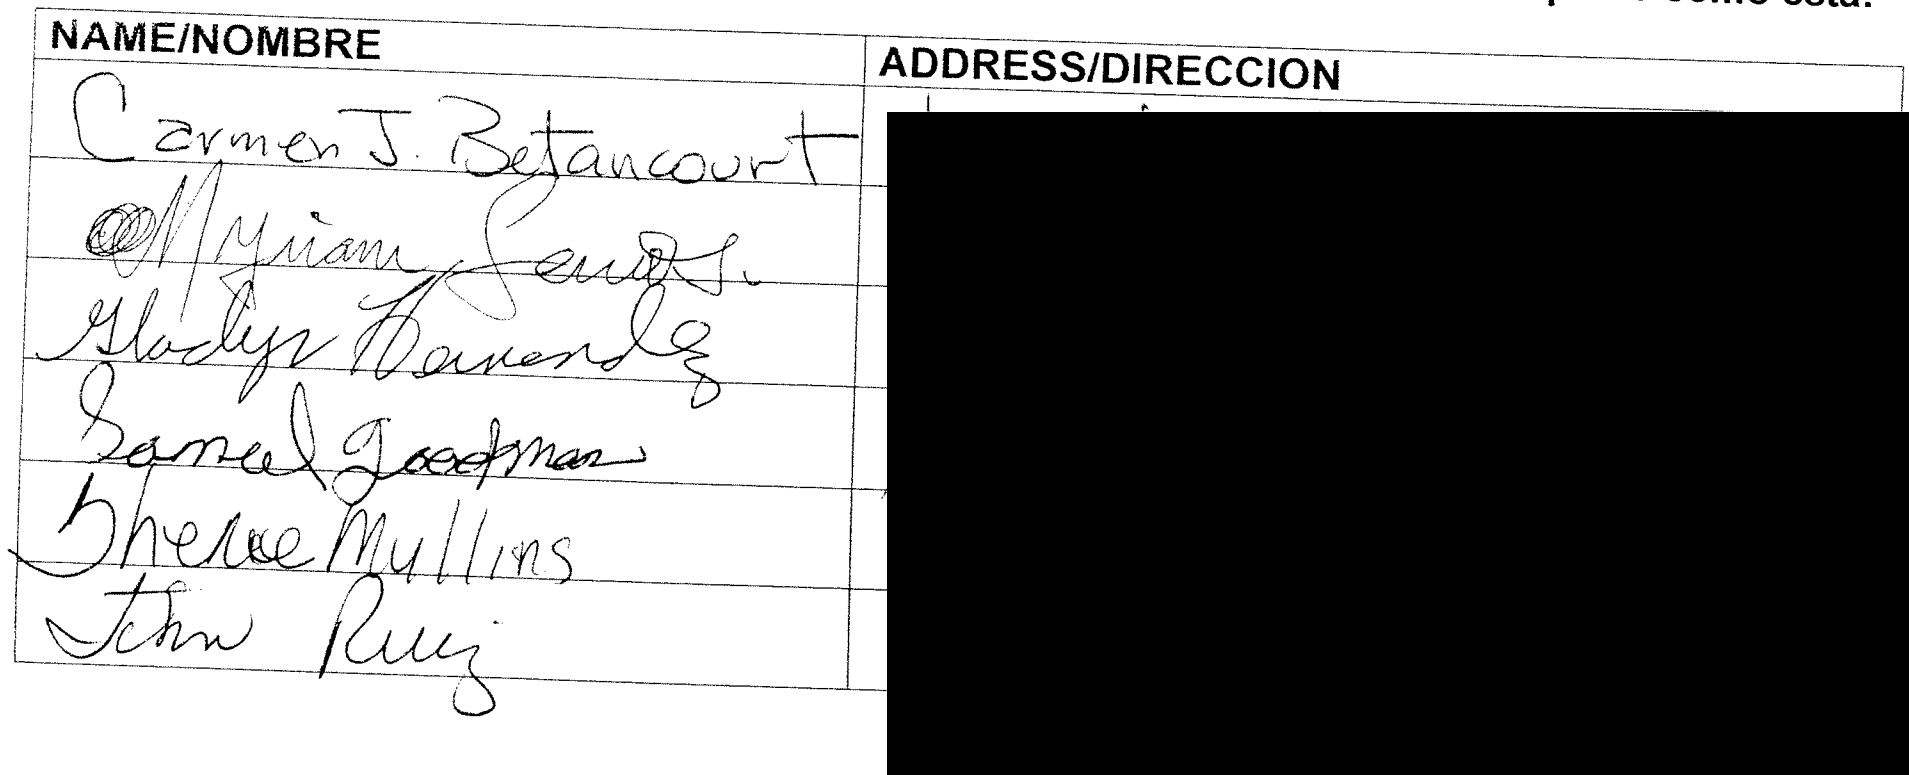 como está.
NAME/NOMBRE ADDRESS/DIRECCION
Carmen J. Betancourt
Myriam
Gladys Hernandez
Samuel Goodman
Mullins
John Ruiz